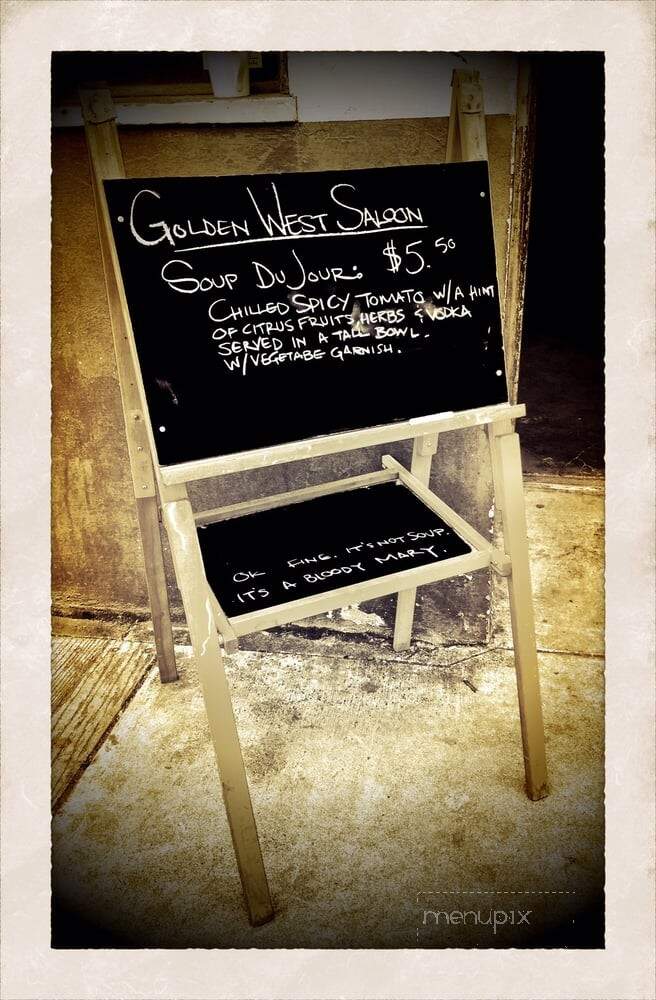 GOLDEN WEST SALOON
SOUP DU JOUR: $5.50
CHILLED SPICY TOMATO W/A HINT
OF CITRUS FRUITS, HERBS & VODKA
SERVED IN A TALL BOWL.
W/VEGETABE GARNISH.
OK FINE. IT'S NOT SOUP.
IT'S A BLOODY MARY.
menupix